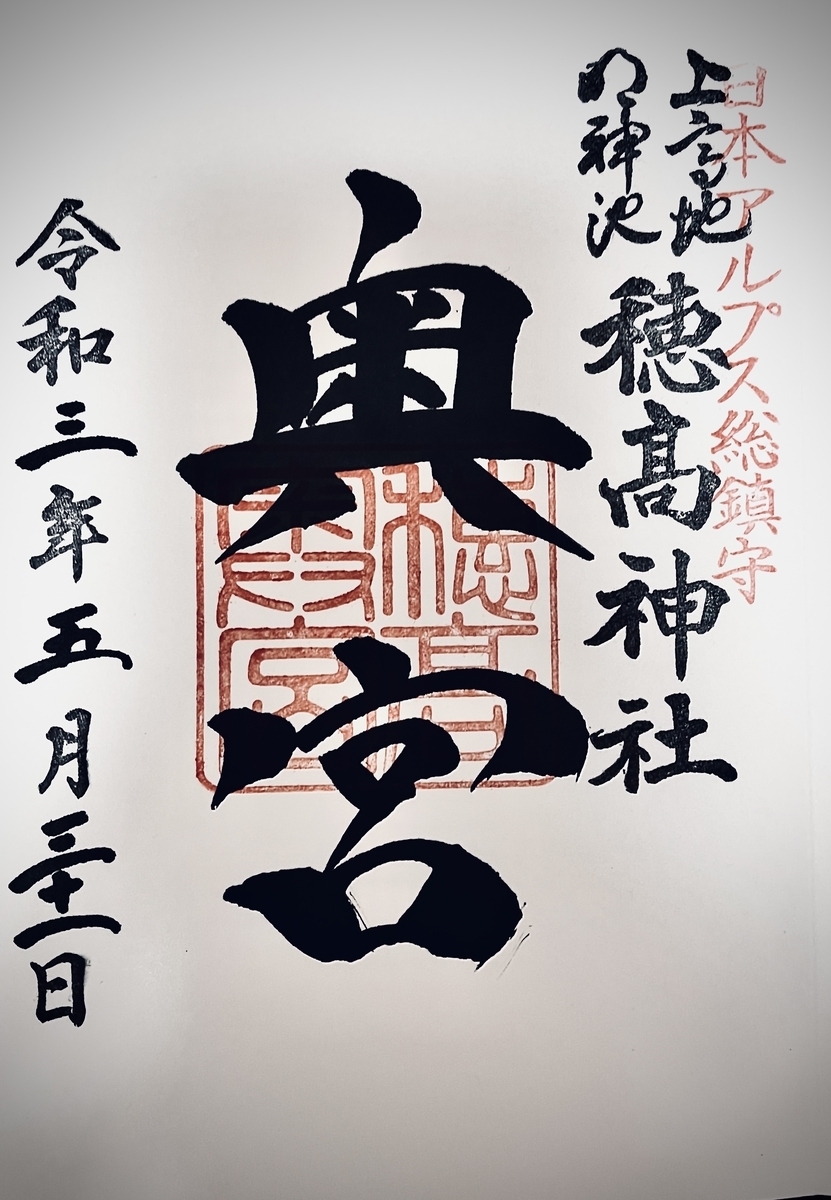 日本アルプス総鎮守
上高地
明神池
穂髙神社
奥宮
穂高
奥宮
令和三年五月三十一日